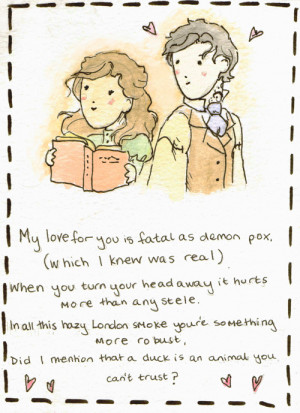 My love for you is fatal as demon pox,
(which I knew was real)
When you turn your head away it hurts
more than any stele.
In all this hazy London smoke you're something
more robust,
Did I mention that a duck is an animal you
can't trust?